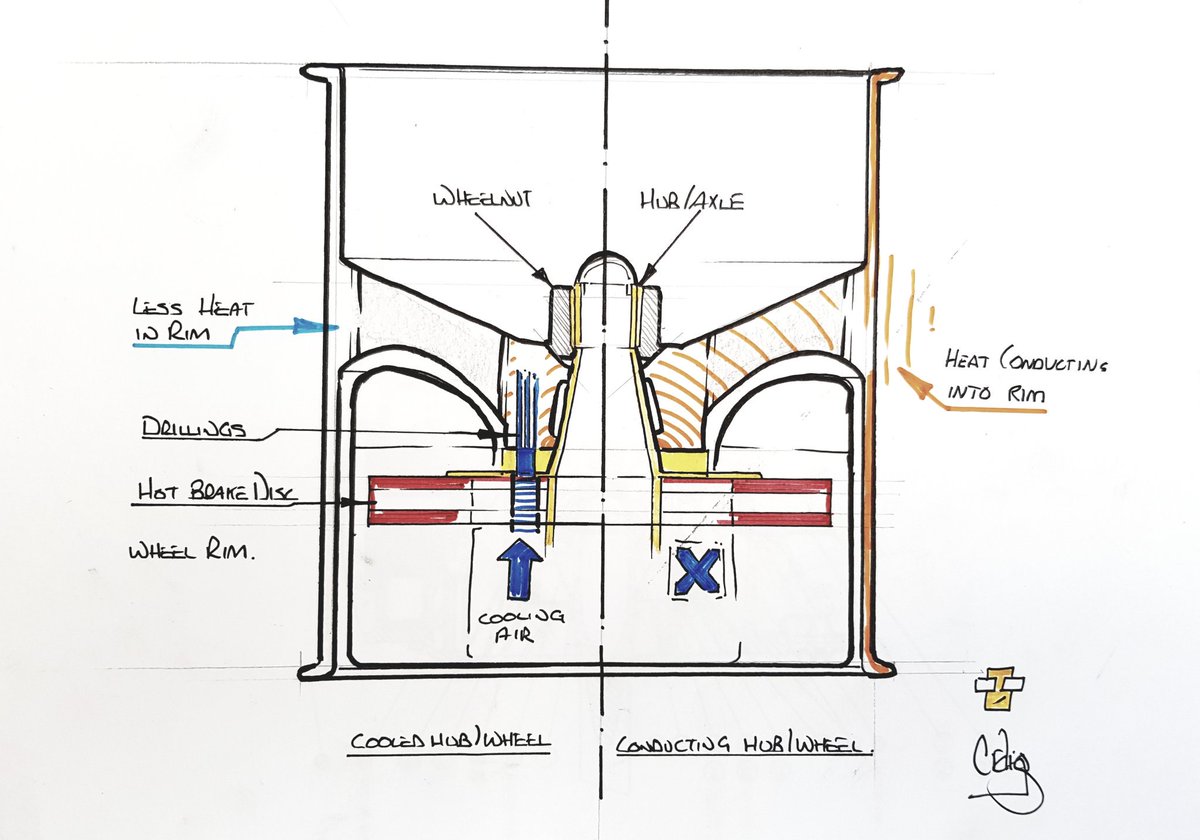 WHEELNUT
HUB/AXLE
LESS HEAT
IN RIM
HEAT CONDUCTING
INTO RIM
DRILLINGS
HOT BRAKE DISC
WHEEL RIM.
COOLING
AIR
COOLED HUB/WHEEL
CONDUCTING HUB/WHEEL.